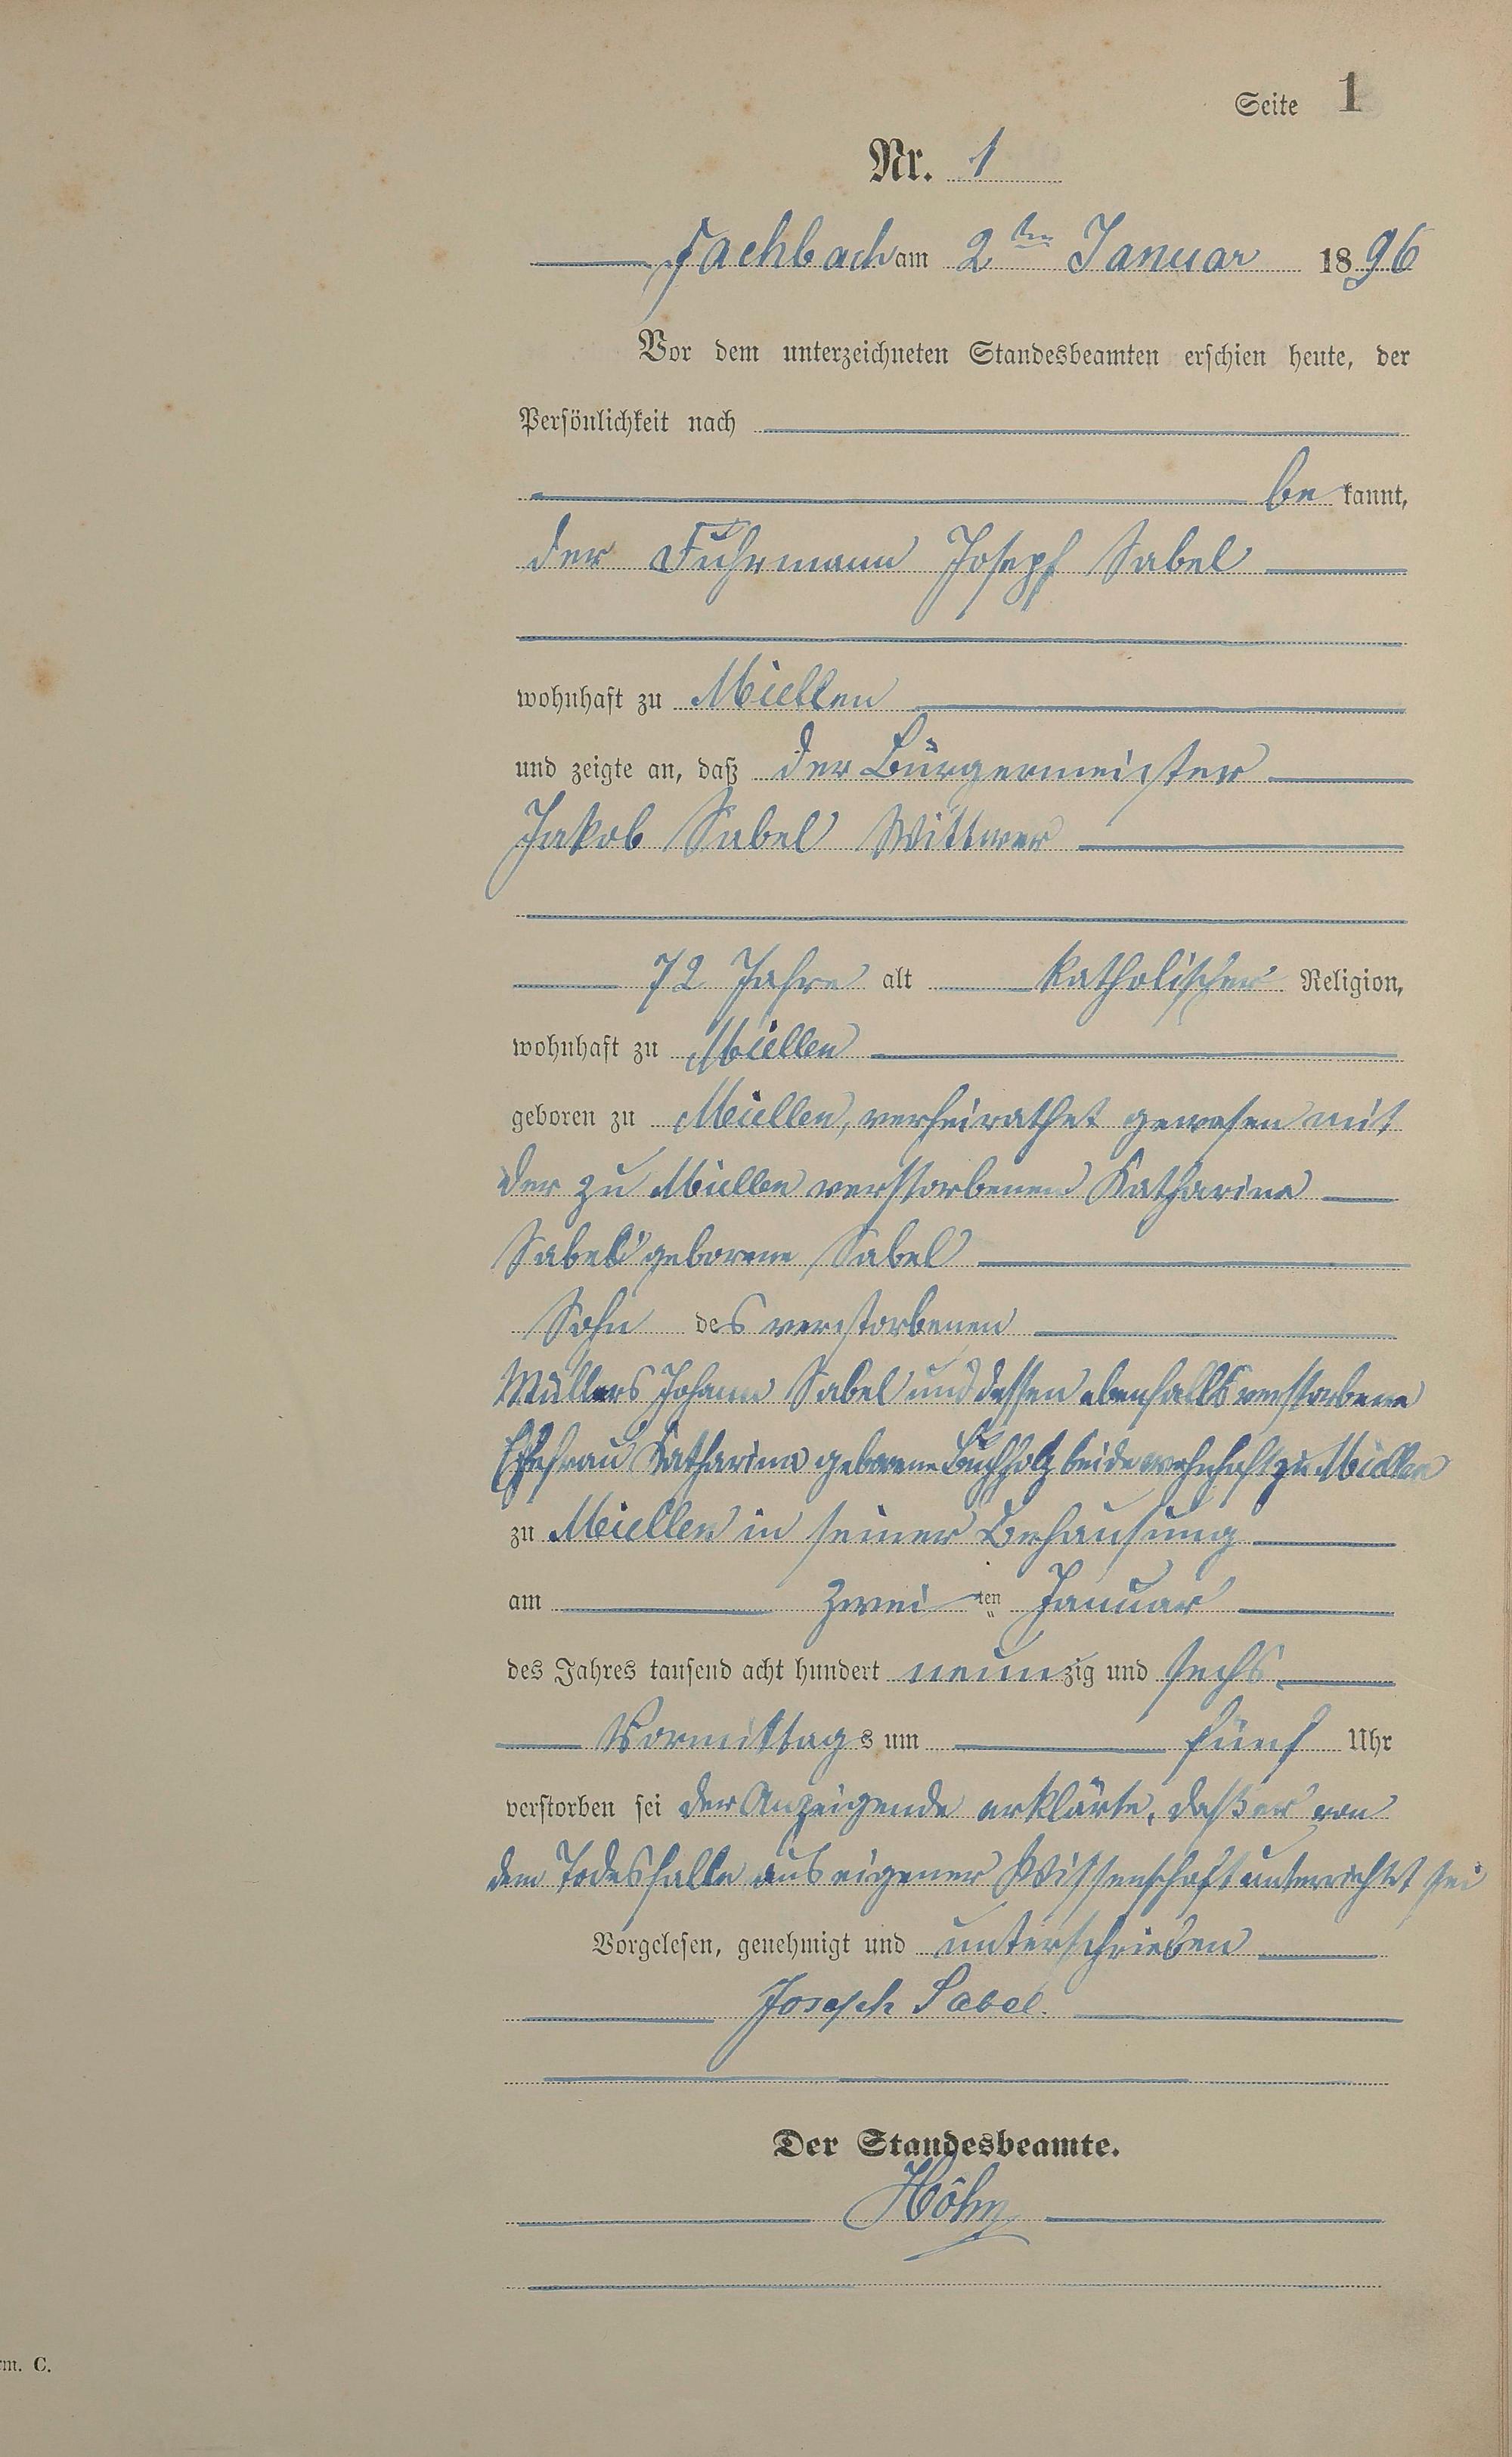 Seite 1
Nr. 1
Fachbach am 2ten Januar 1896
Vor dem unterzeichneten Standesbeamten erschien heute, der
Persönlichkeit nach
bekannt,
der Fuhrmann Joseph Sabel
wohnhaft zu Miellen
und zeigte an, daß der Bürgermeister
Jakob Sabel Wittwer
72 Jahre alt katholischer Religion,
wohnhaft zu Miellen
geboren zu Miellen, verheirathet gewesen mit
der zu Miellen verstorbenen Katharina
Sabel geborene Sabel
Sohn des verstorbenen
Müllers Johann Sabel und dessen ebenfalls verstorbene
Ehefrau Katharina geborene Buchholz beide wohnhaft zu Miellen
zu Miellen in seiner Behausung
am zwei ten Januar
des Jahres tausend acht hundert neunzig und sechs
Vormittags um fünf Uhr
verstorben sei der Anzeigende erklärte, daß er von
dem Todesfalle aus eigener Wissenschaft unterrichtet sei
Vorgelesen, genehmigt und unterschrieben
Joseph Sabel.
Der Standesbeamte.
Höhn
rm. C.